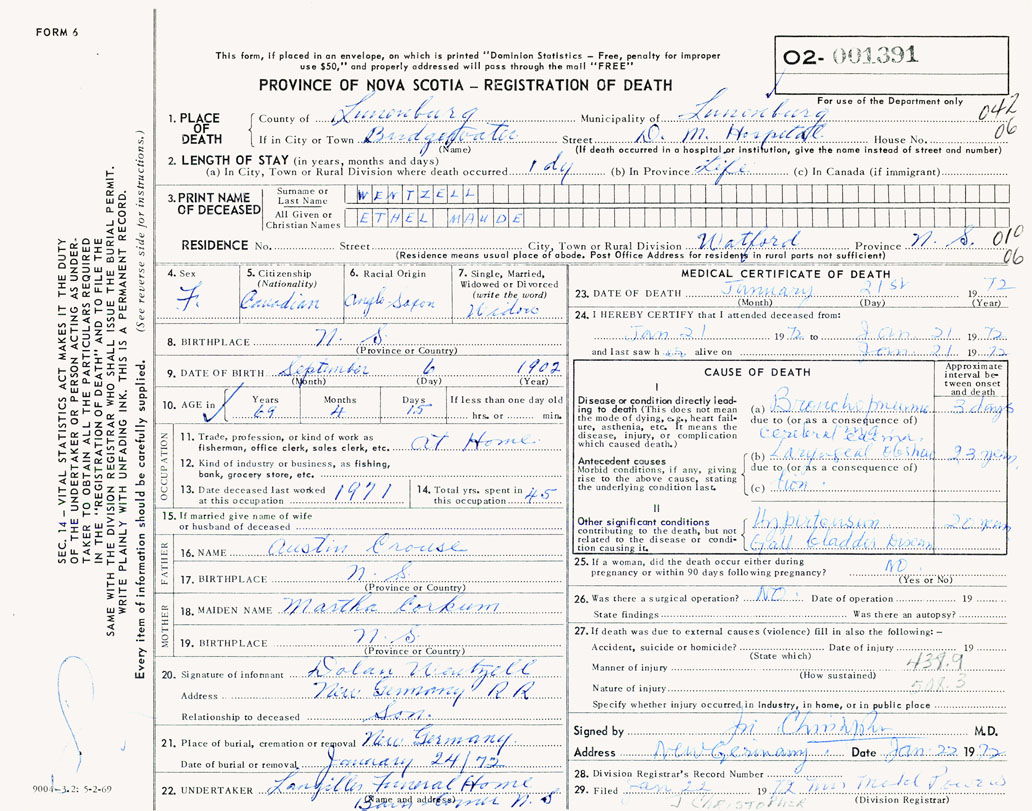 FORM 6
This form, if placed in an envelope, on which is printed "Dominion Statistics - Free, penalty for improper
use $50," and properly addressed will pass through the mail "FREE"
PROVINCE OF NOVA SCOTIA – REGISTRATION OF DEATH
O2- 001391
For use of the Department only
042
06
1. PLACE OF DEATH
County of Lunenburg Municipality of Lunenburg
If in City or Town Bridgewater Street D. M. Hospital House No.
(Name) (If death occurred in a hospital or institution, give the name instead of street and number)
2. LENGTH OF STAY (in years, months and days)
(a) In City, Town or Rural Division where death occurred 1 dy (b) In Province Life (c) In Canada (if immigrant)
3. PRINT NAME OF DECEASED
Surname or Last Name WENTZELL
All Given or Christian Names ETHEL MAUDE
RESIDENCE No. Street City, Town or Rural Division Watford Province N. S. 010
(Residence means usual place of abode. Post Office Address for residents in rural parts not sufficient) 06
4. Sex
F.
5. Citizenship
(Nationality)
Canadian
6. Racial Origin
Anglo Saxon
7. Single, Married,
Widowed or Divorced
(write the word)
Widow
8. BIRTHPLACE N. S.
(Province or Country)
9. DATE OF BIRTH September 6 1902
(Month) (Day) (Year)
10. AGE in
Years Months Days If less than one day old
69 4 15 hrs. or min.
OCCUPATION
11. Trade, profession, or kind of work as
fisherman, office clerk, sales clerk, etc. at Home
12. Kind of industry or business, as fishing,
bank, grocery store, etc.
13. Date deceased last worked
at this occupation 1971
14. Total yrs. spent in
this occupation 45
15. If married give name of wife
or husband of deceased
FATHER
16. NAME Austin Crouse
17. BIRTHPLACE N. S.
(Province or Country)
MOTHER
18. MAIDEN NAME Martha Corkum
19. BIRTHPLACE N. S.
(Province or Country)
20. Signature of informant Dolan Wentzell
Address New Germany R R
Relationship to deceased Son.
21. Place of burial, cremation or removal New Germany
Date of burial or removal January 24/72
22. UNDERTAKER Funeral Home
(Name and address) N. S
MEDICAL CERTIFICATE OF DEATH
23. DATE OF DEATH January 21st 19 72
(Month) (Day) (Year)
24. I HEREBY CERTIFY that I attended deceased from:
Jan 21 19 72 to Jan 21 19 72
and last saw h alive on Jan. 21 19 72
CAUSE OF DEATH
Approximate
interval be-
tween onset
and death
I
Disease or condition directly lead-
ing to death (This does not mean
the mode of dying, e.g., heart fail-
ure, asthenia, etc. It means the
disease, injury, or complication
which caused death.)
(a) 3 days
due to (or as a consequence of)
cerebral
Antecedent causes
Morbid conditions, if any, giving
rise to the above cause, stating
the underlying condition last.
(b) 23 years
due to (or as a consequence of)
(c)
II
Other significant conditions
contributing to the death, but not
related to the disease or condi-
tion causing it.
Hypertension 20 years
Gall bladder
25. If a woman, did the death occur either during
pregnancy or within 90 days following pregnancy? NO
(Yes or No)
26. Was there a surgical operation? NO Date of operation 19
State findings Was there an autopsy?
27. If death was due to external causes (violence) fill in also the following: –
Accident, suicide or homicide? Date of injury 19
(State which)
Manner of injury 439.9
(How sustained)
Nature of injury 508.3
Specify whether injury occurred in industry, in home, or in public place
Signed by M.D.
Address New Germany. Date Jan 22 19 72
28. Division Registrar's Record Number
29. Filed Jan 22 19 72
(Division Registrar)
J CHRISTOPHER
SEC. 14 – VITAL STATISTICS ACT MAKES IT THE DUTY
OF THE UNDERTAKER OR PERSON ACTING AS UNDER-
TAKER TO OBTAIN ALL THE PARTICULARS REQUIRED
IN THE "REGISTRATION OF DEATH" AND TO FILE THE
SAME WITH THE DIVISION REGISTRAR WHO SHALL ISSUE THE BURIAL PERMIT.
WRITE PLAINLY WITH UNFADING INK. THIS IS A PERMANENT RECORD.
Every item of information should be carefully supplied. (See reverse side for instructions.)
9004-3.2: 5-2-69